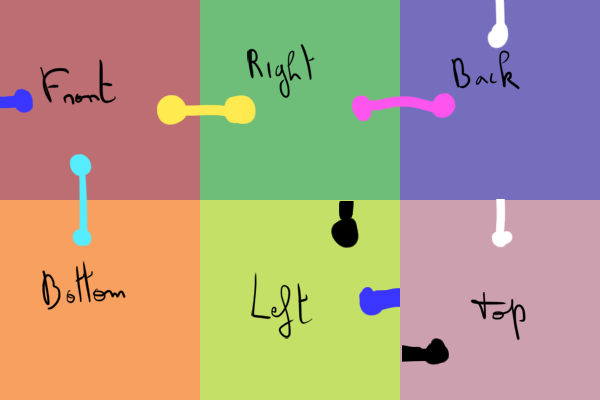 Front
Right
Back
Bottom
Left
Top